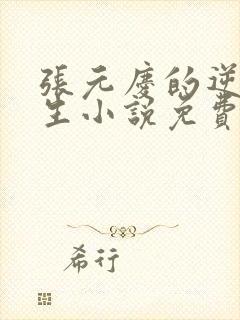 張元慶的逆
生小說免費
希行